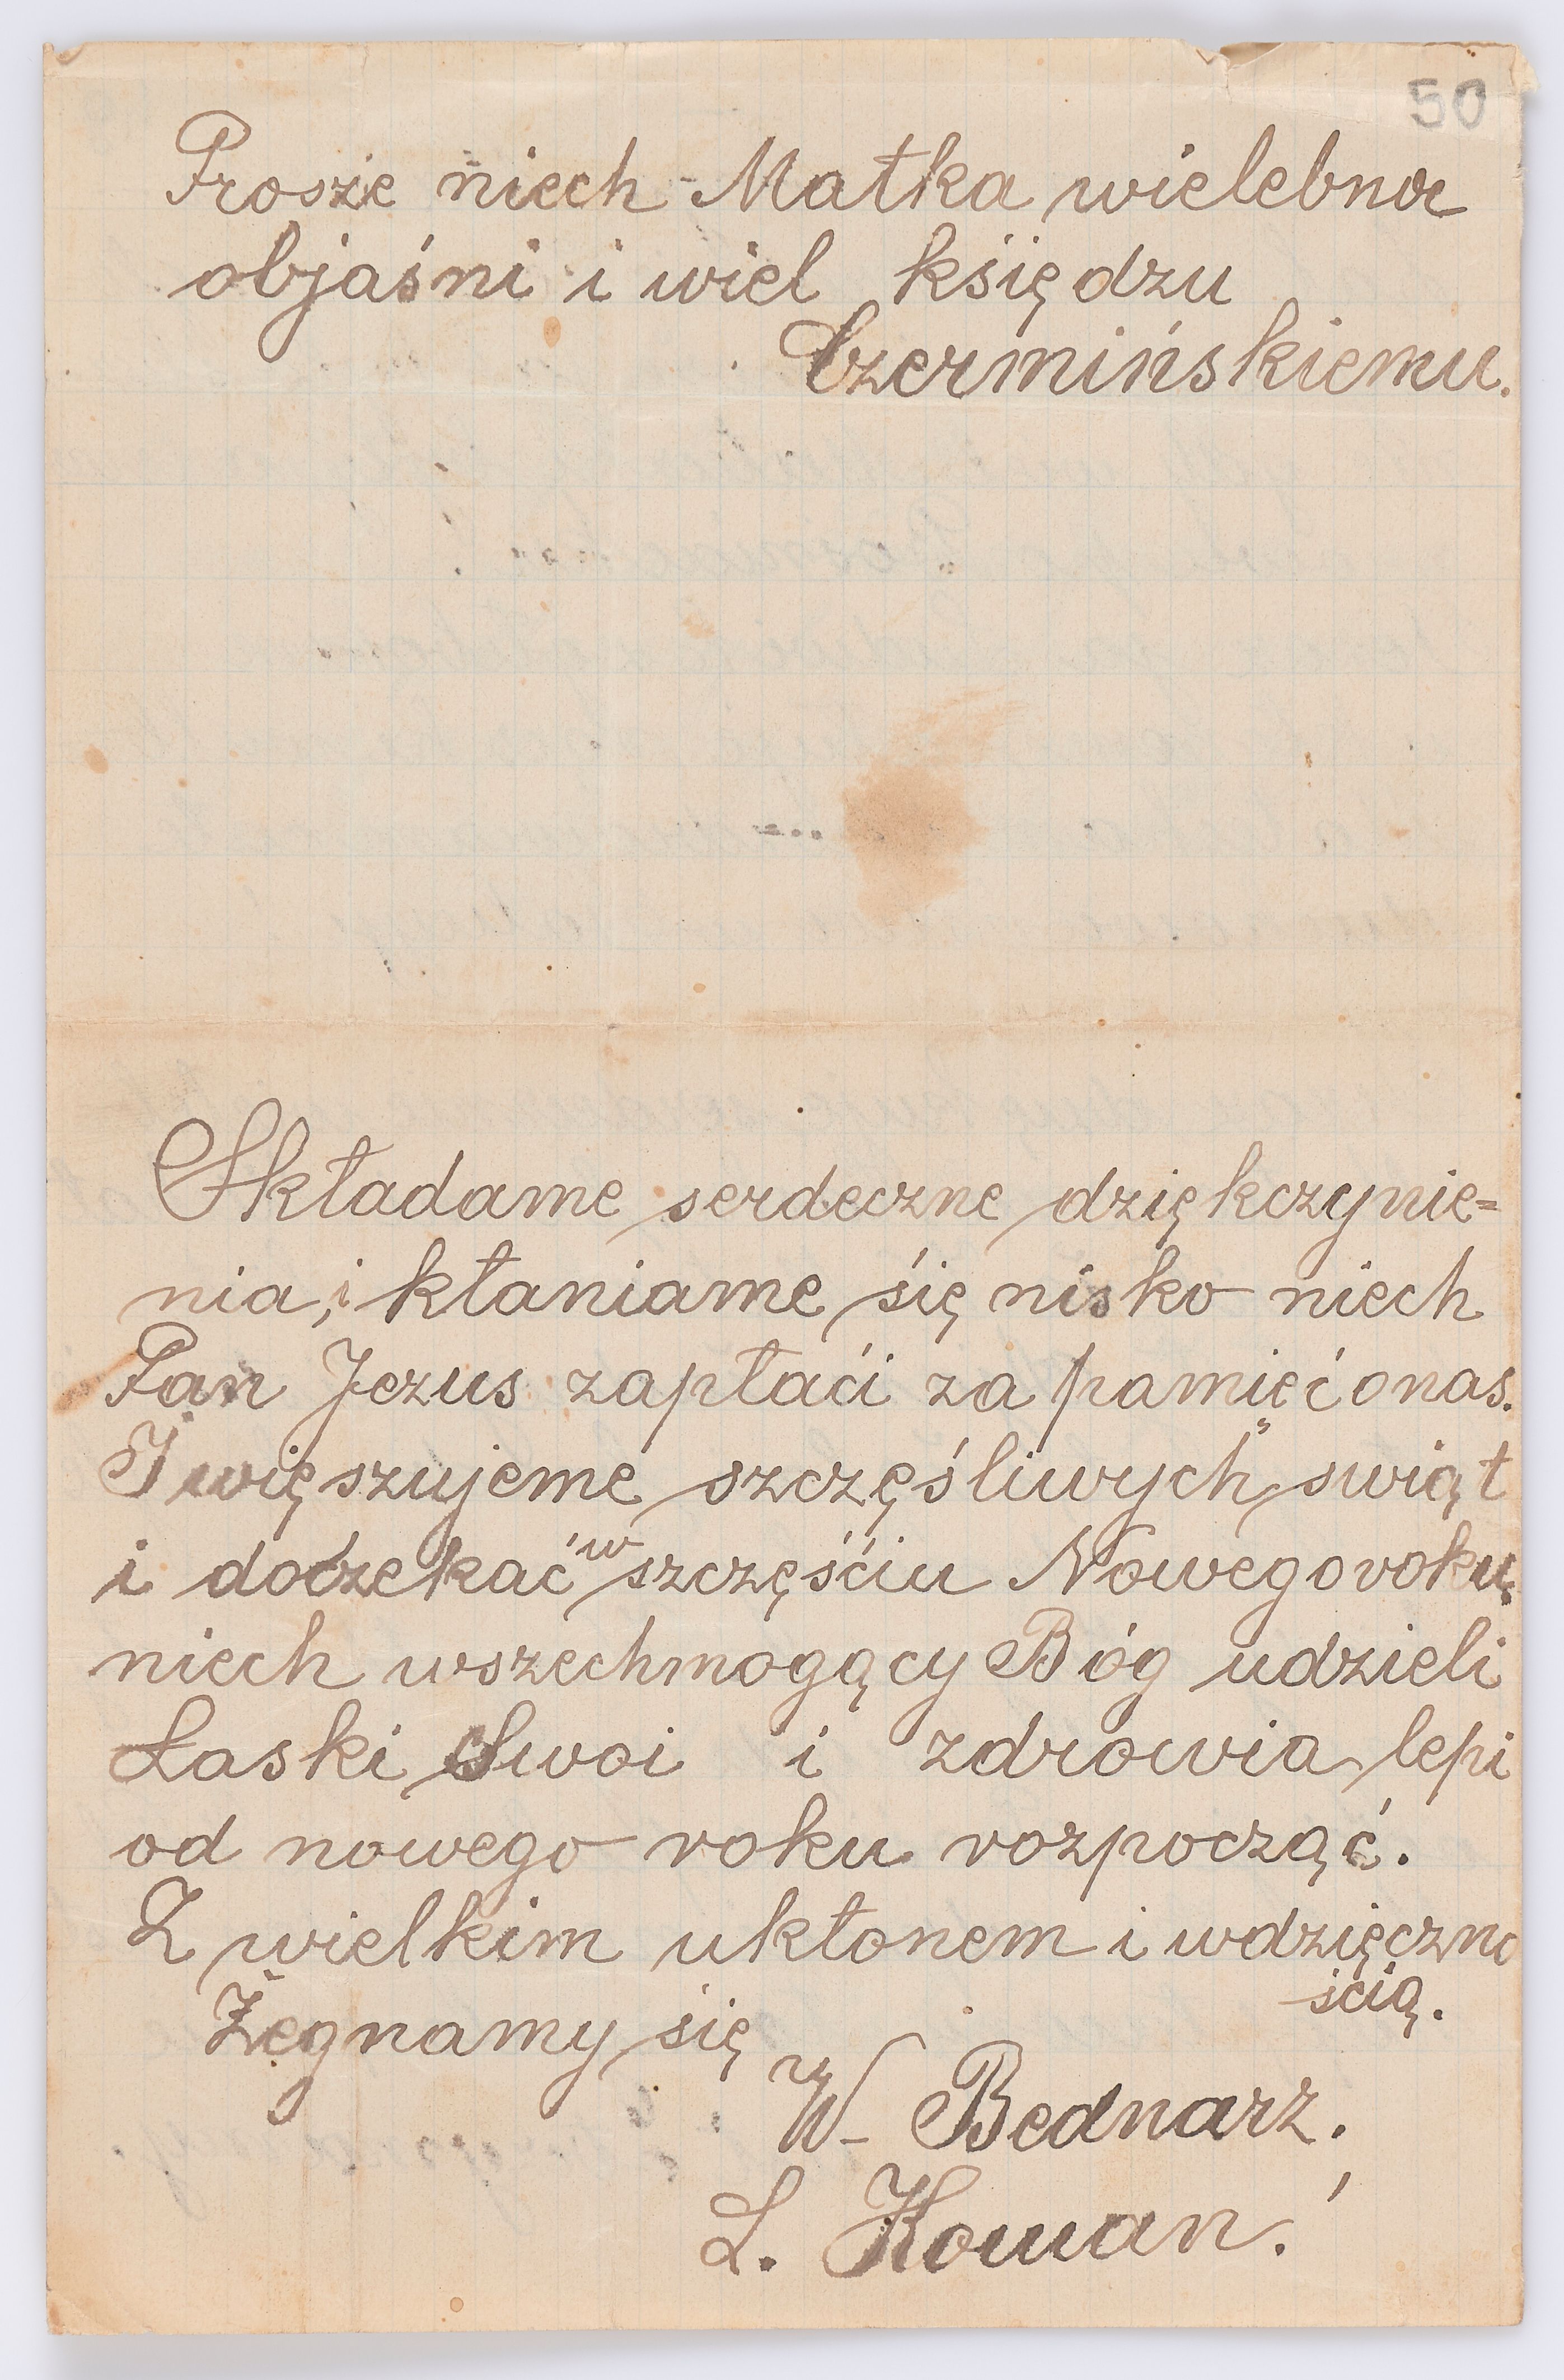 50
Prosże niech Matka wielebna
objaśni i wiel księdzu
Czermińskiemu.
Składame serdeczne dziękczynie=
nia, i kłaniame śię nisko niech
Pan Jezus zapłaći za pamięć o nas.
I więszujeme szczęśliwych swiąt
i doczekać w szczęśćiu Nowego roku,
niech wszechmogący Bóg udzieli
Łaski Swoi i zdrowia lepi
od nowego roku rozpocząć.
Z wielkim ukłonem i wdzięczno
ścią.
Żegnamy się
W- Bednarz.
L. Kowań.